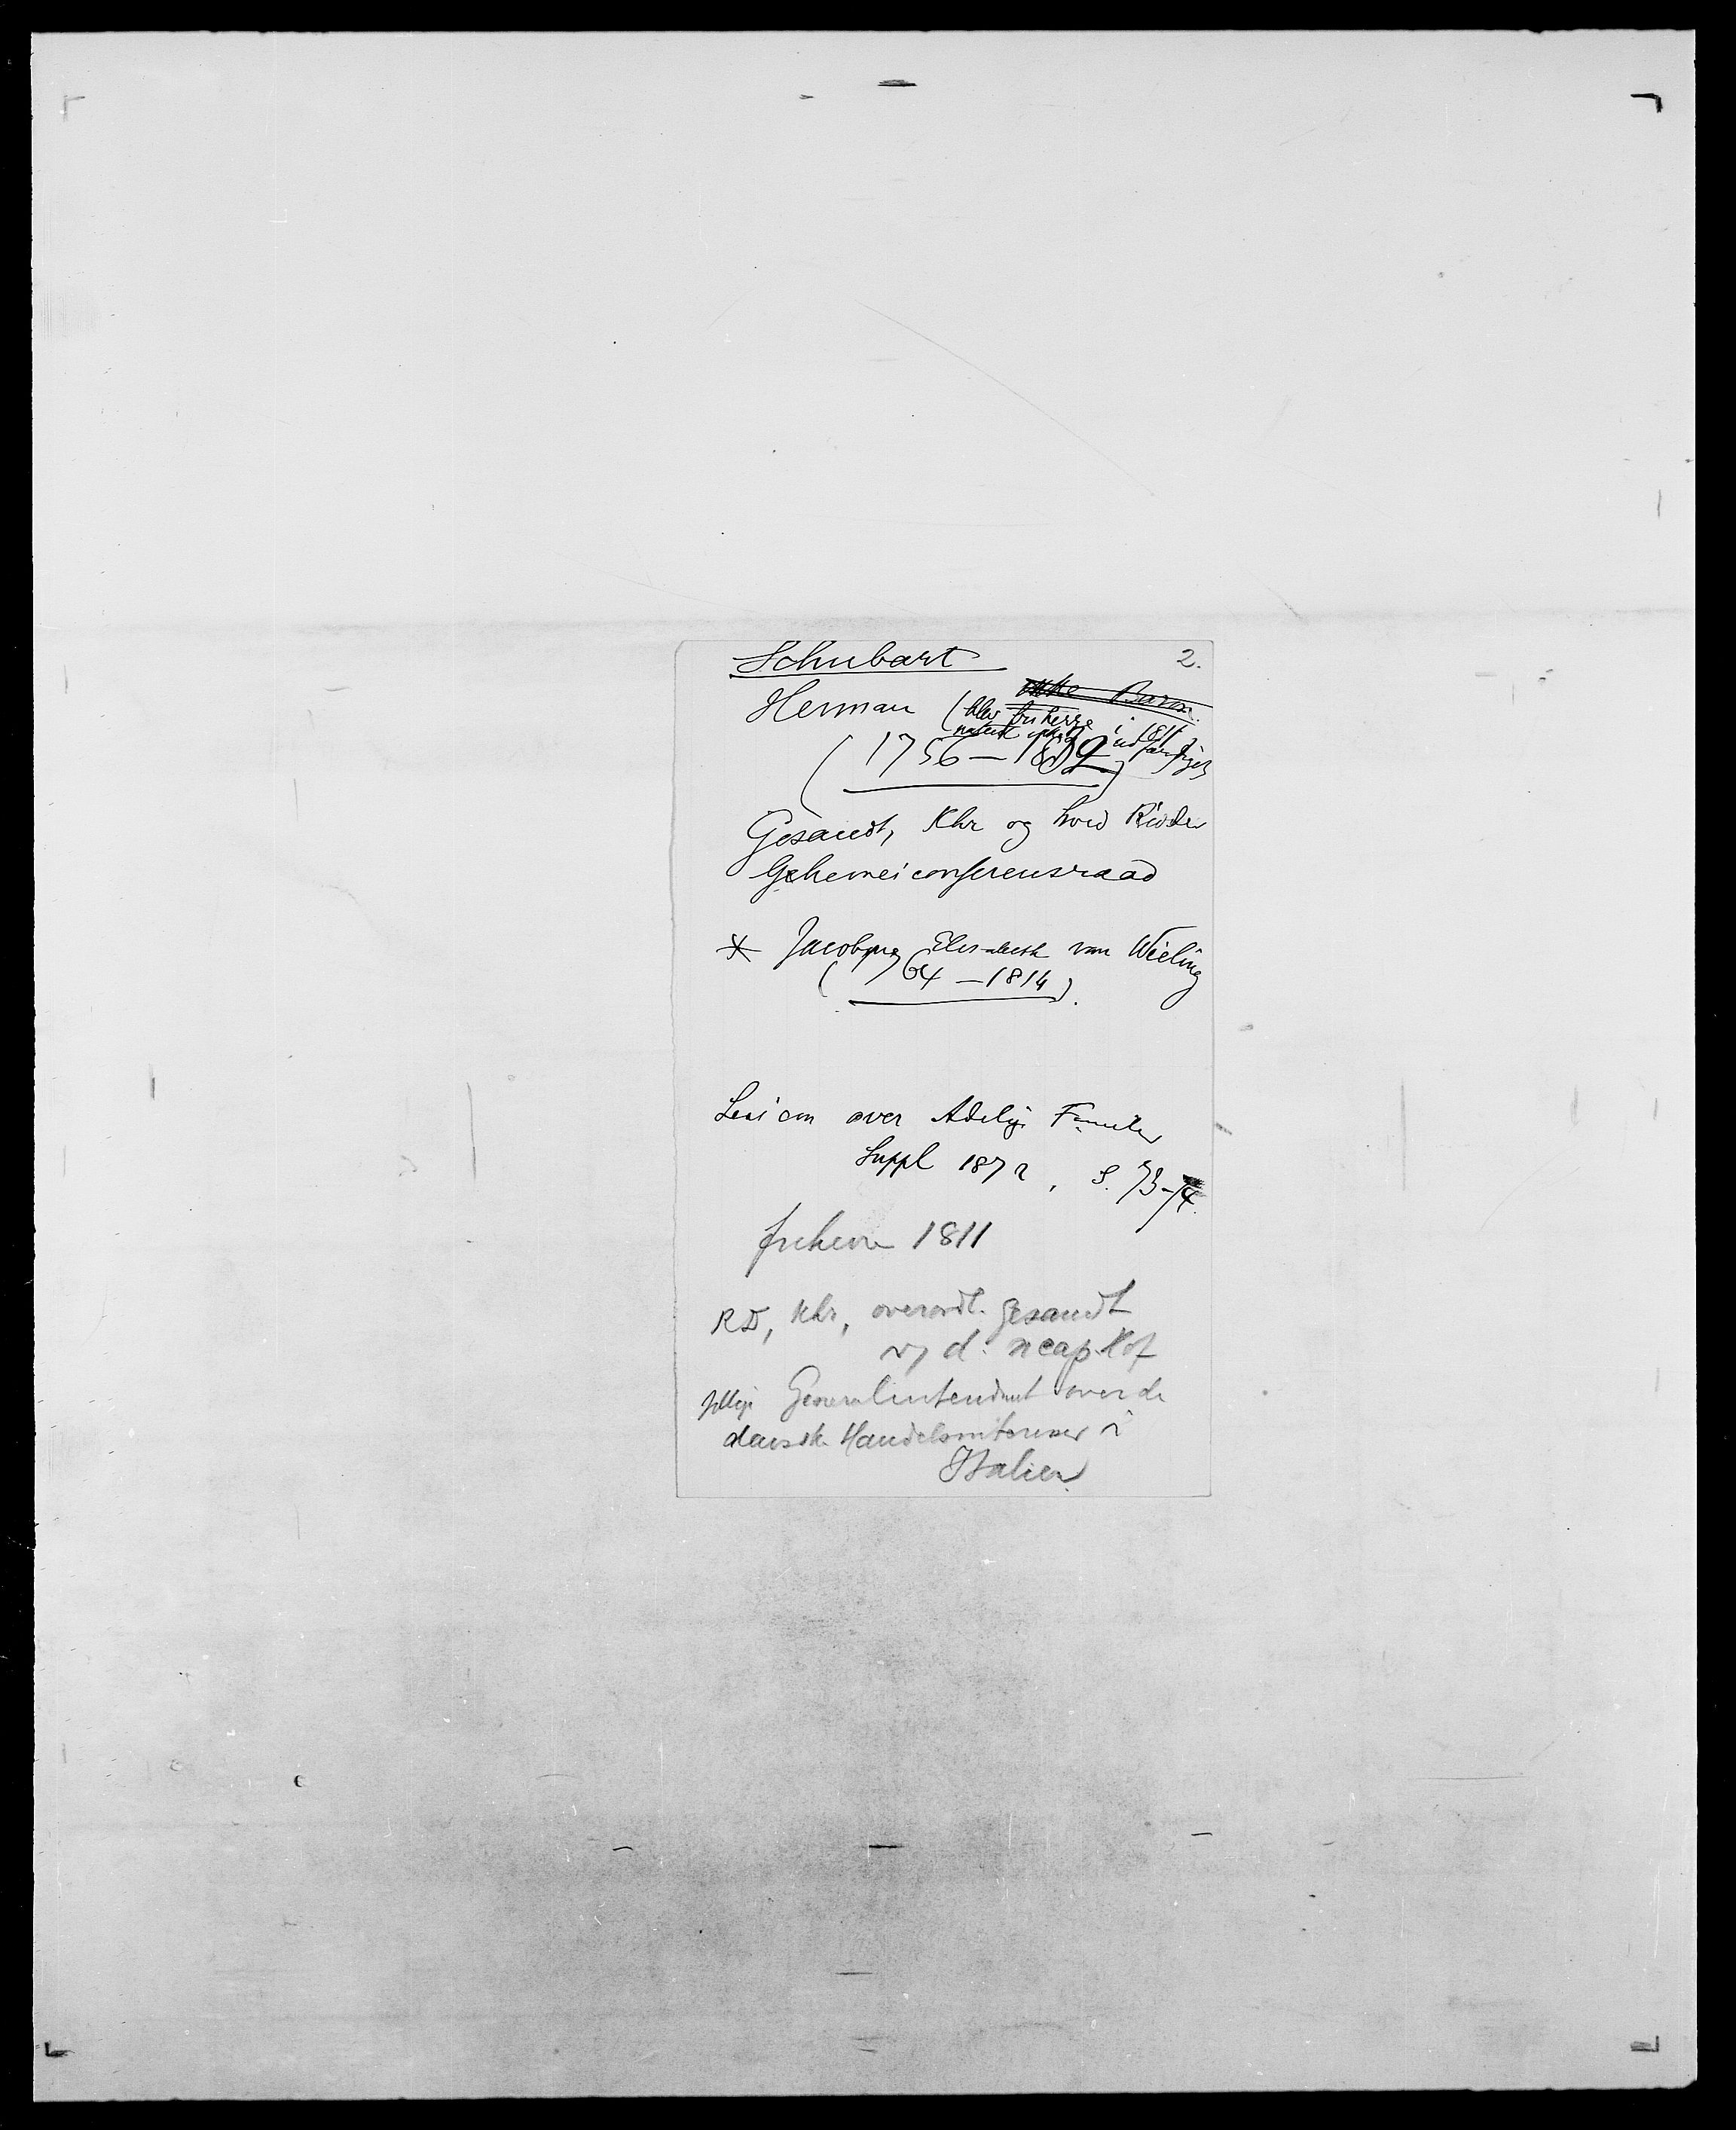 Schubart 2.
Ikke Baron
Herman (blev friherre i 1811
(1756 – 1832)
Gesandt, Khr og hvid Ridder
Geheimeiconferensraad
* Jacoba Elisabeth von Wieling
(1764 – 1814).
Lexicon over Adelige Familier
Suppl 1872, S. 73-74.
friherre 1811
RD, Khr, overordl. Gesandt
v/ d. neap. Hof
tillige Generalintendant over de
danske Handels i
Italien